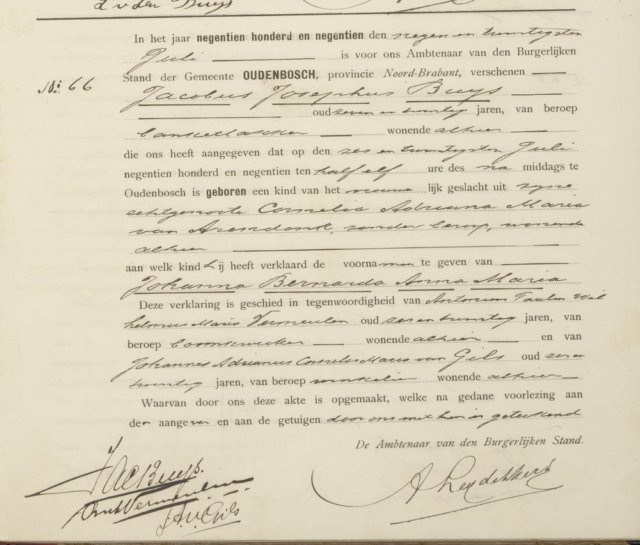 d v den Buys
In het jaar negentien honderd en negentien den negen en twintigsten
Juli is voor ons Ambtenaar van den Burgerlijken
No: 66
Stand der Gemeente OUDENBOSCH, provincie Noord-Brabant, verschenen
Jacobus Josephus Buys
oud zeven en twintig jaren, van beroep
banketbakker wonende alhier
die ons heeft aangegeven dat op den zes en twintigsten Juli
negentien honderd en negentien ten half elf ure des na middags te
Oudenbosch is geboren een kind van het lijk geslacht uit zyne
echtgenoote Cornelia Adriana Maria
van Arendonk, zonder beroep, wonende
alhier
aan welk kind hij heeft verklaard de voornamen te geven van
Johanna Bernarda Anna Maria
Deze verklaring is geschied in tegenwoordigheid van Antonius Paulus Wil
helmus Maria Vermeulen oud zes en twintig jaren, van
beroep boomkweeker wonende alhier en van
Johannes Adrianus Cornelis Maria van Gils oud zes en
twintig jaren, van beroep winkelier wonende alhier
Waarvan door ons deze akte is opgemaakt, welke na gedane voorlezing aan
den aangever en aan de getuigen door ons met hen is geteekend
De Ambtenaar van den Burgerlijken Stand.
JacBuys.
Ant Vermeulen
J A v Gils
A Leydekkers